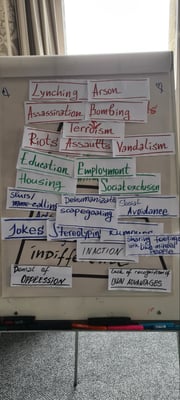 Lynching Arson
Assassination Bombing
Terrorism
Riots Assaults Vandalism
Education Employment
Housing Social exclusion
slurs/ Dehumanization Social
name-calling scapegoating Avoidance
Jokes Stereotyping Rumours sharing feelings
with like-minded
people
indifference INACTION
Denial of Lack of recognition of
OPPRESSION OWN ADVANTAGES